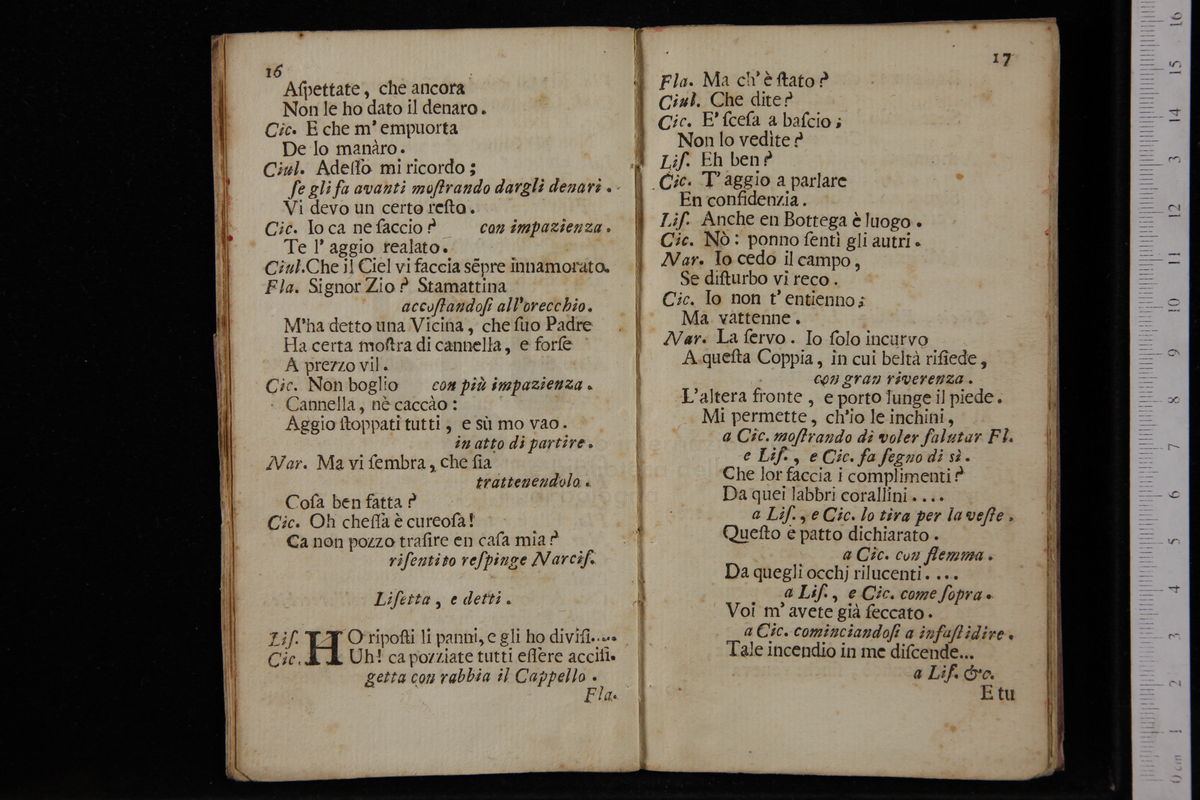 16
Aſpettate, che ancora
Non le ho dato il denaro.
Cic. E che m' empuorta
De lo manàro.
Ciul. Adeſſo mi ricordo;
ſe gli fa avanti moſtrando dargli denari.
Vi devo un certo reſto.
Cic. Io ca ne faccio? con impazienza.
Te l' aggio realato.
Ciul. Che il Ciel vi faccia sẽpre innamorato.
Fla. Signor Zio? Stamattina
accoſtandoſi all'orecchio.
M'ha detto una Vicina, che ſuo Padre
Ha certa moſtra di cannella, e forſe
A prezzo vil.
Cic. Non boglio con più impazienza.
Cannella, nè caccào:
Aggio ſtoppati tutti, e sù mo vao.
in atto di partire.
Nar. Ma vi ſembra, che ſia
trattenendolo.
Coſa ben fatta?
Cic. Oh cheſſa è cureoſa!
Ca non pozzo traſire en caſa mia?
riſentito reſpinge Narciſ.
Liſetta, e detti.
Liſ. HO ripoſti li panni, e gli ho diviſi....
Cic. Uh! ca pozziate tutti eſſere acciſi.
getta con rabbia il Cappello.
Fla.
17
Fla. Ma ch' è ſtato?
Ciul. Che dite?
Cic. E' ſceſa a baſcio;
Non lo vedite?
Liſ. Eh ben?
Cic. T' aggio a parlare
En confidenzia.
Liſ. Anche en Bottega è luogo.
Cic. Nò: ponno ſentì gli autri.
Nar. Io cedo il campo,
Se diſturbo vi reco.
Cic. Io non t' entienno;
Ma vattenne.
Nar. La ſervo. Io ſolo incurvo
A queſta Coppia, in cui beltà riſiede,
con gran riverenza.
L'altera fronte, e porto lunge il piede.
Mi permette, ch'io le inchini,
a Cic. moſtrando di voler ſalutar Fl.
e Liſ., e Cic. fa ſegno di sì.
Che lor faccia i complimenti?
Da quei labbri corallini....
a Liſ., e Cic. lo tira per la veſte.
Queſto è patto dichiarato.
a Cic. con flemma.
Da quegli occhj rilucenti....
a Liſ., e Cic. come ſopra.
Voi m' avete già ſeccato.
a Cic. cominciandoſi a infaſtidire.
Tale incendio in me diſcende...
a Liſ. &c.
E tu
0 cm 1 2 3 4 5 6 7 8 9 10 11 12 13 14 15 16